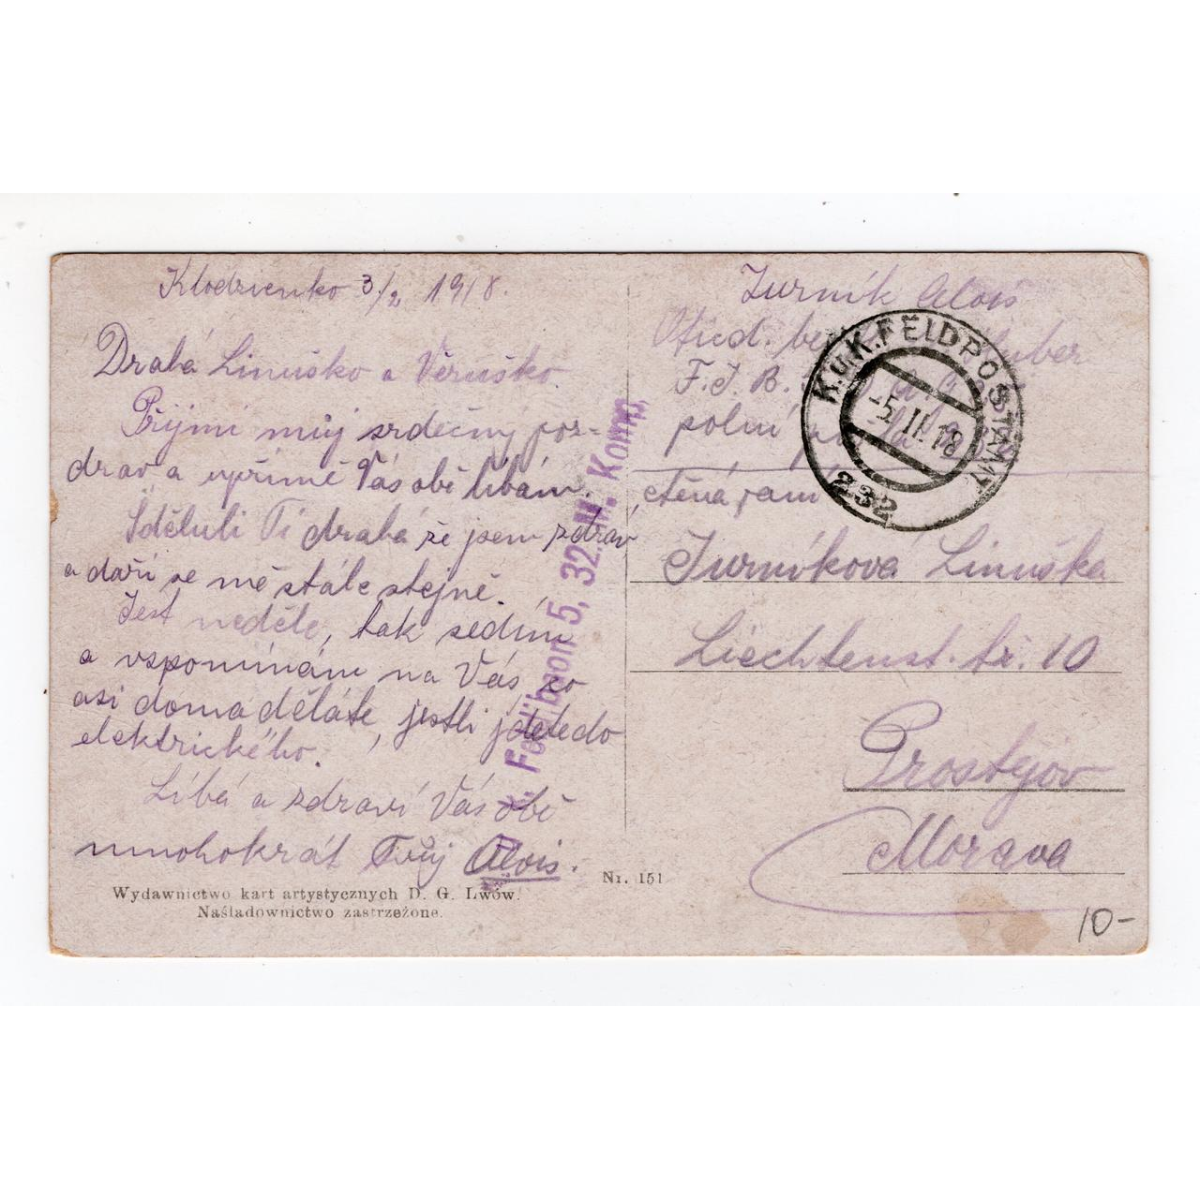 Klodzienko 3/2 1918.
Drahá Linuško a Věruško.
Přijmi můj srdečný poz-
drav a upřímě Vás obě líbám.
Sděluli Ti drahá že jsem zdráv
a daří se mě stále stejně.
Jest neděle, tak sedím
a vspomínám na Vás, co
asi doma děláte, jestli jdete do
elektrického.
Líbá a zdraví Vás obě
mnohokrát Tvůj Alois.
Wydawnictwo kart artystycznych D. G. Lwów.
Naśladownictwo zastrzeżone.
Nr. 151
Feldbaon 5, 32. M. Komp.
Jurník Alois
F. J. B.
polní
K.u.K. FELDPOSTAMT
-5. II. 18
232
ctěná paní
Jurníková Linuška
Liechtenst. tř. 10
Prostějov
Morava
10-